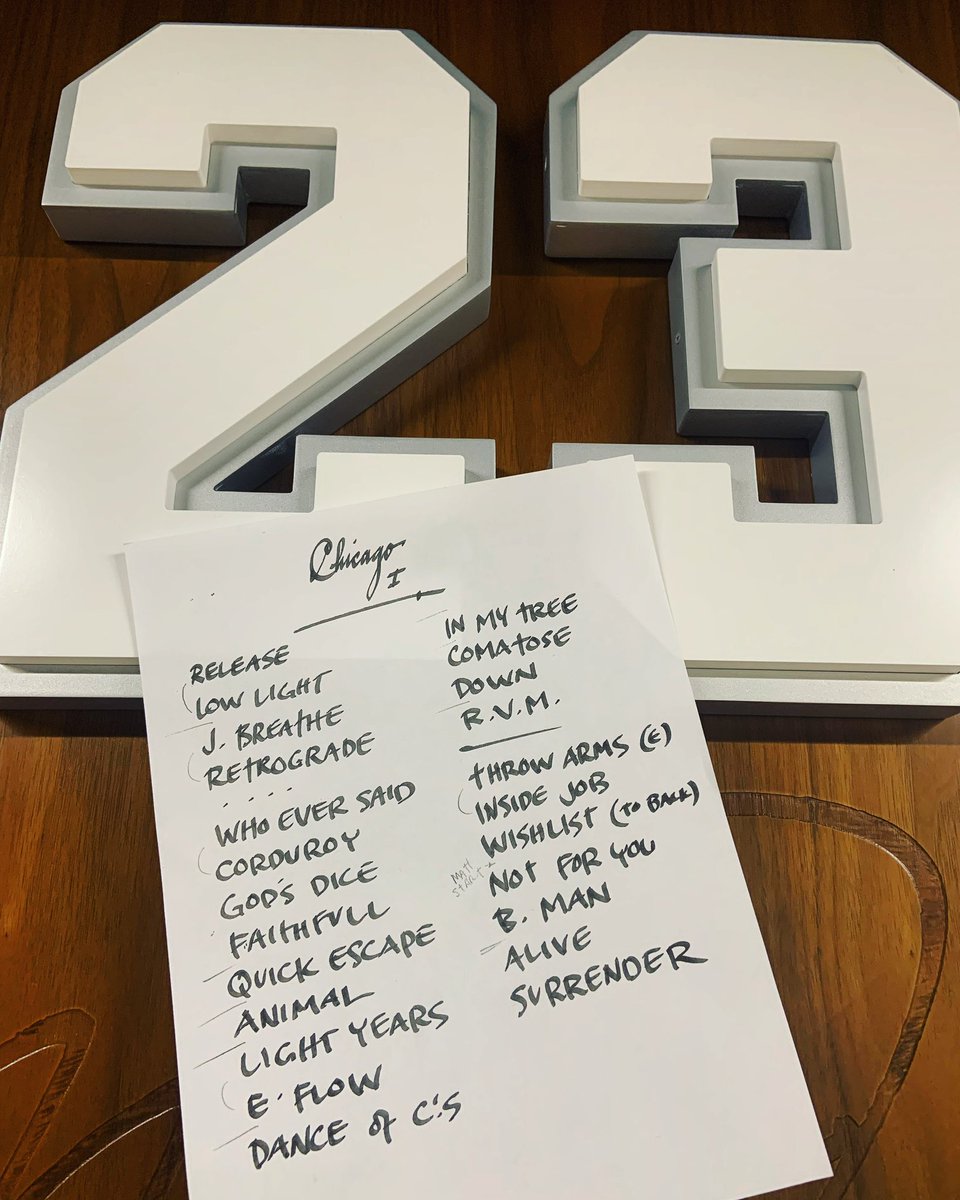 23
Chicago
I
RELEASE
LOW LIGHT
J. BREATHE
RETROGRADE
WHO EVER SAID
CORDUROY
GOD'S DICE
FAITHFULL
QUICK ESCAPE
ANIMAL
LIGHT YEARS
E. FLOW
DANCE of C.'S
IN MY TREE
COMATOSE
DOWN
R.V.M.
THROW ARMS (E)
INSIDE JOB
WISHLIST (TO BACK)
MATT
START
NOT FOR YOU
B. MAN
ALIVE
SURRENDER